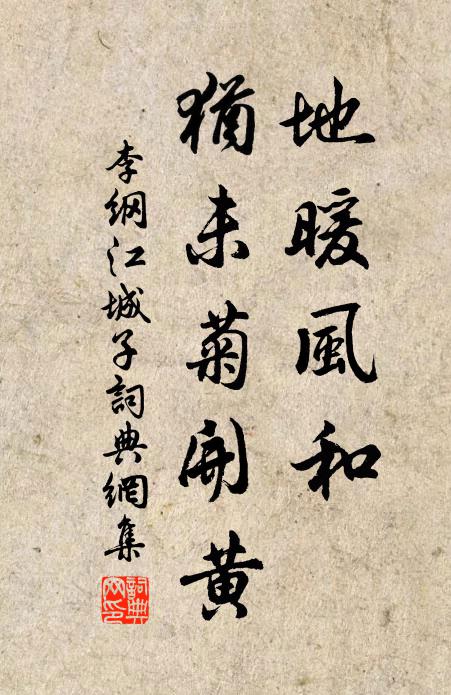 地暖風和
猶未菊開黄
李綱江城子詞典網集
詞典
网印